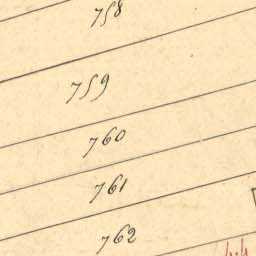 758
759
760
761
762